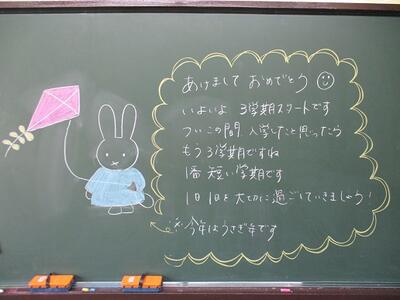 あけまして おめでとう
いよいよ 3学期スタートです
ついこの間 入学したと思ったら
もう3学期ですね
1番 短い学期です
1日1日を大切に過ごしていきましょう!
※今年はうさぎ年です